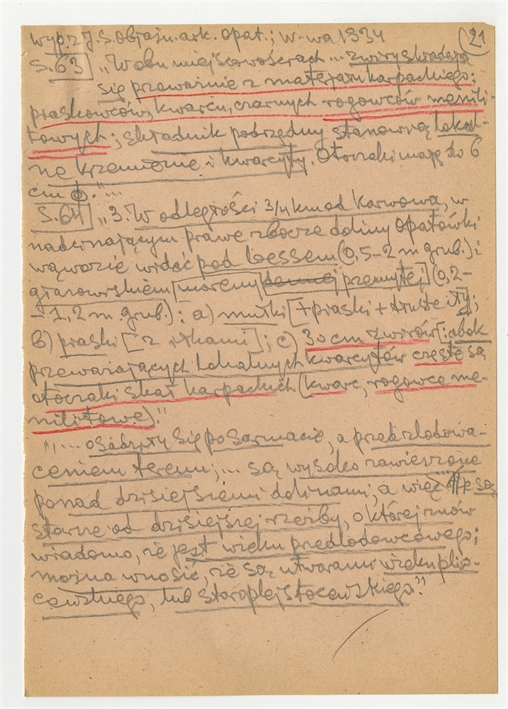 wyp. z J. S. Objaśn. ark. Opat.; W-wa 1934 (21
S. 63 „W obu miejscowościach ... żwiry składają
się przeważnie z materjału karpackiego:
piaskowców, kwarcu, czarnych rogowców menili-
towych; składnik podrzędny stanowią lokal-
ne krzemienie i kwarcyty. Otoczaki mają do 6
cm ϕ."...
S. 64 „3. W odległości 3/4 km od Karwowa, w
nadcinającym prawe zbocze doliny Opatówki
wąwozie widać pod lessem (0,5-2 m grub.) i
głazowskiem [moreną] przemytej (0,2-
- 1,2 m grub.): a) mułki [+piaski + tłuste iły];
b) piaski [z iłkami]; c) 30 cm żwirów [: obok
przeważających lokalnych kwarcytów częste są
otoczaki skał karpackich (kwarc, rogowce me-
nilitowe)."
"... osadziły się po sarmacie, a przed zlodowa-
ceniem terenu; ... są wysoko zawieszone
ponad dzisiejszemi dolinami, a więc są
starsze od dzisiejszej rzeźby, o której znów
wiadomo, że jest wieku przedlodowcowego;
można wnosić, że są utworami wieku plio-
ceńskiego, lub staroplejstoceńskiego."